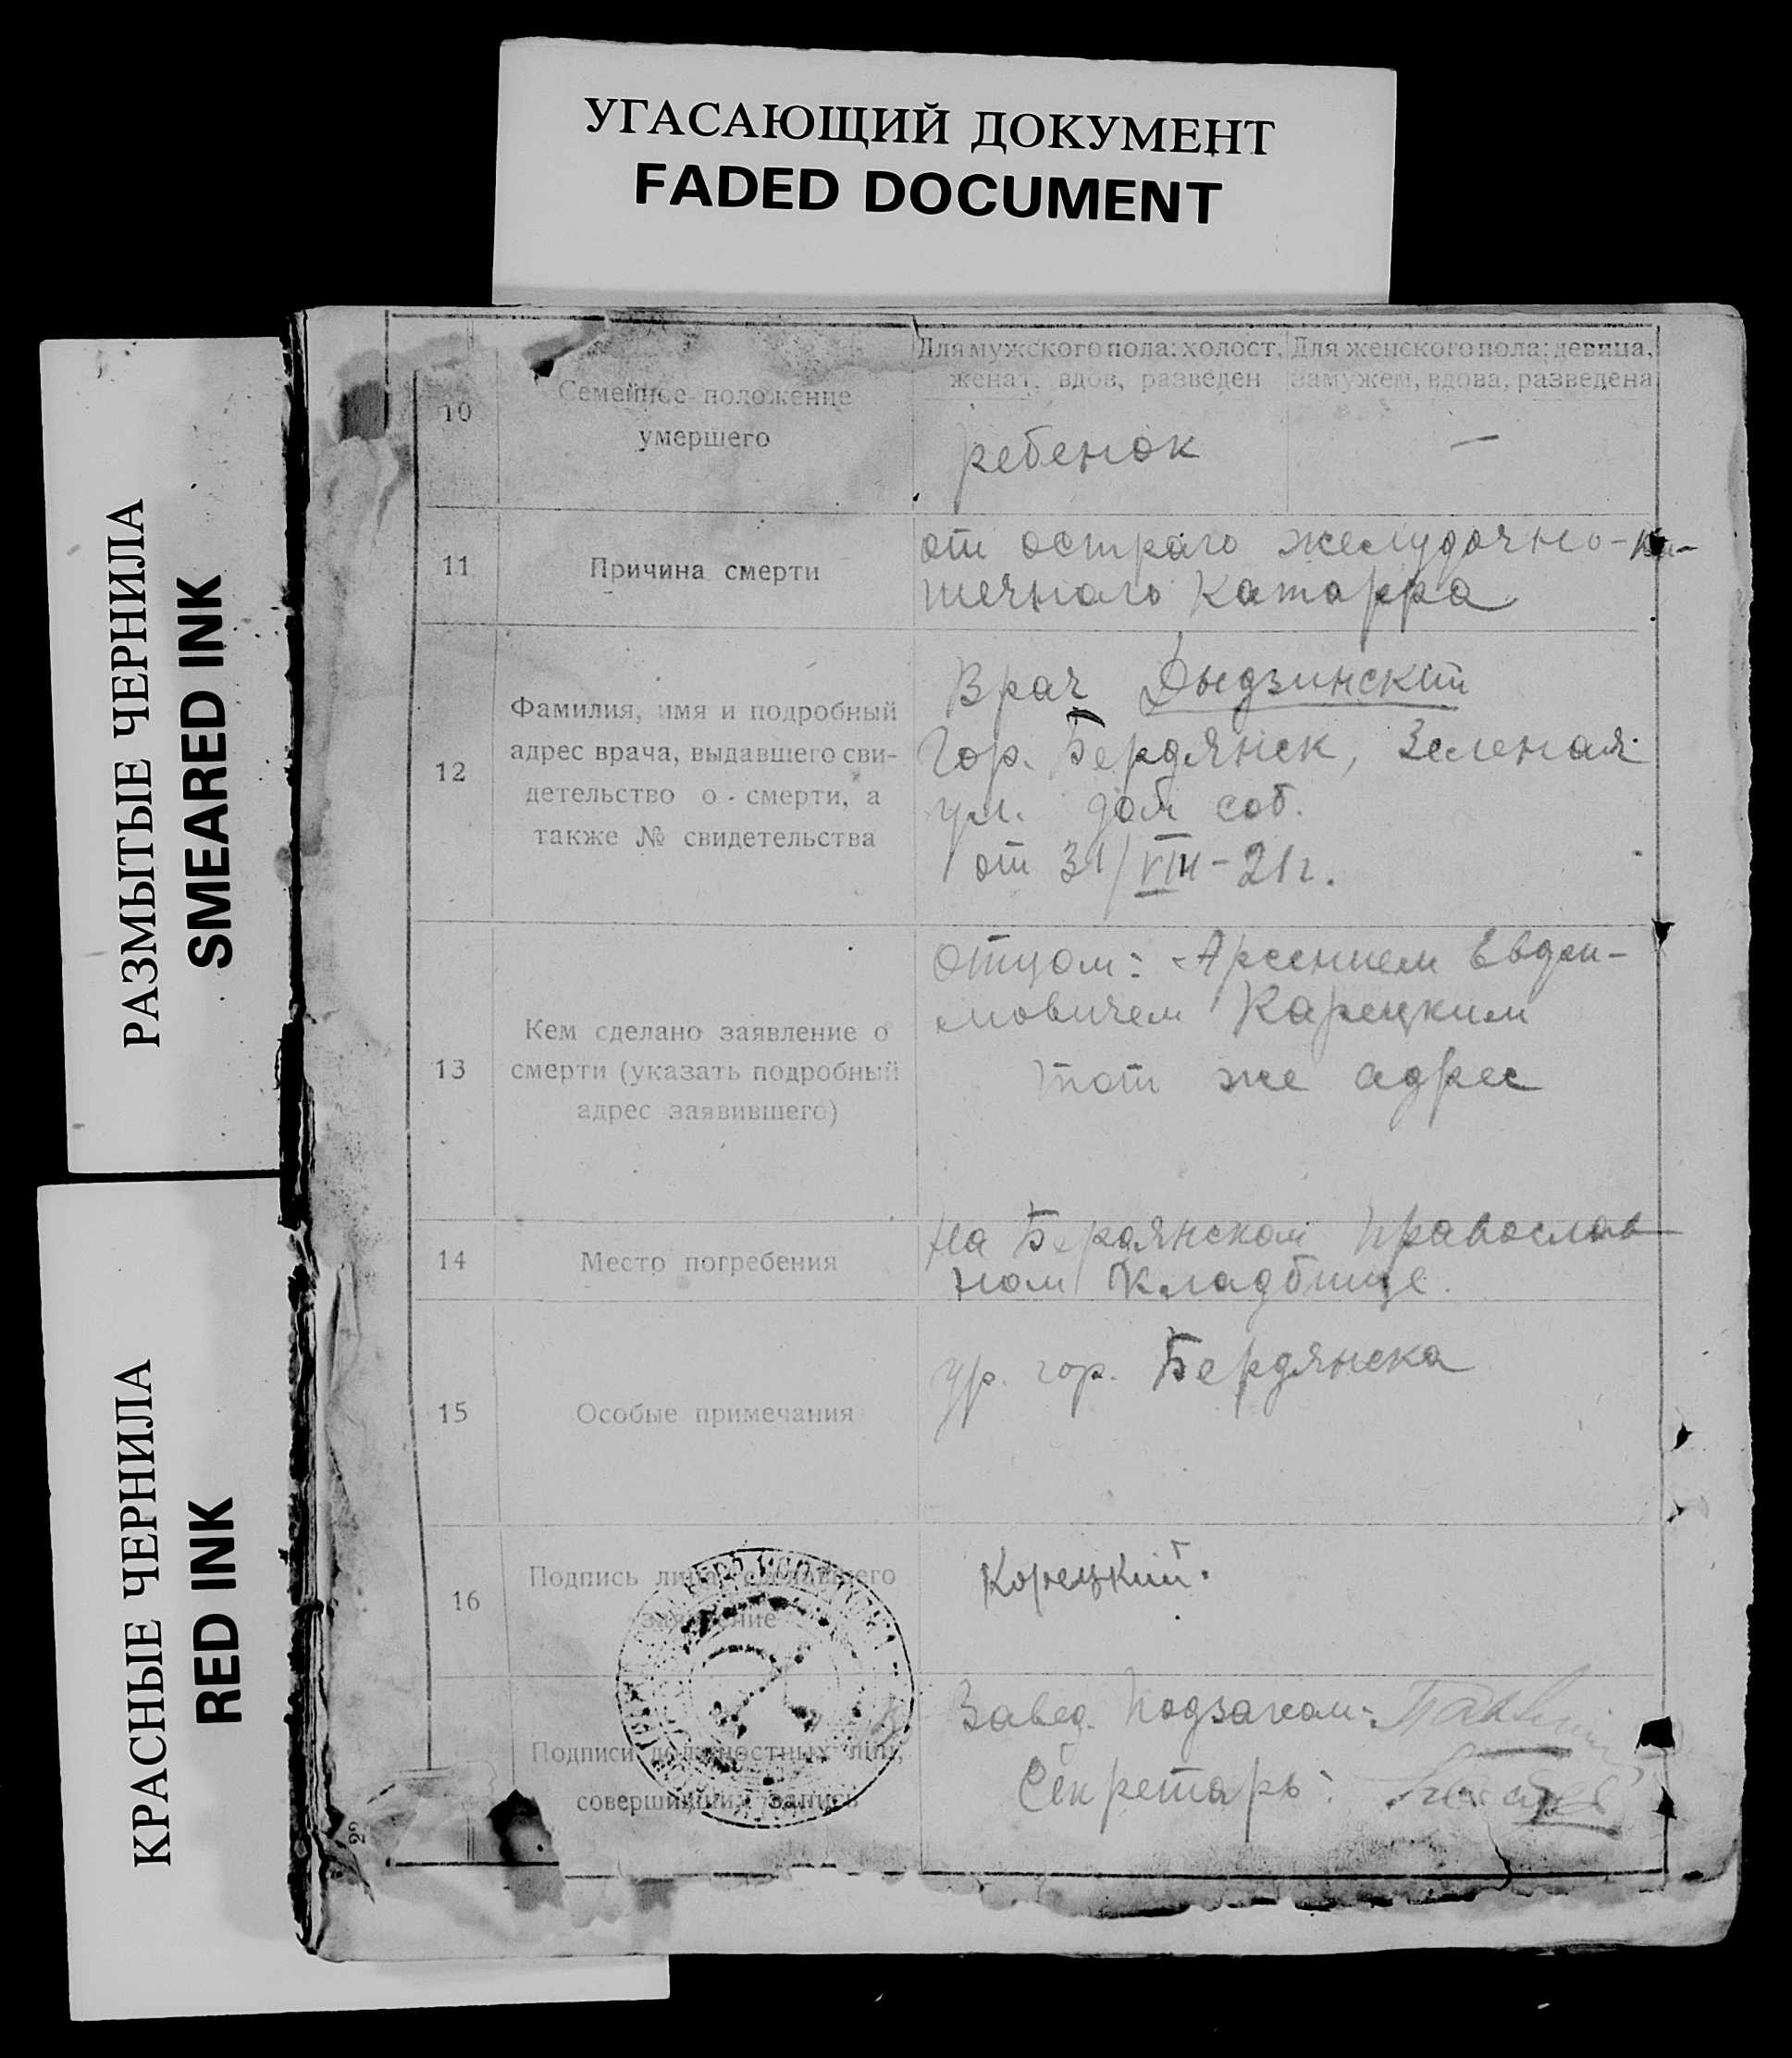 УГАСАЮЩИЙ ДОКУМЕНТ
FADED DOCUMENT
РАЗМЫТЫЕ ЧЕРНИЛА
SMEARED INK
КРАСНЫЕ ЧЕРНИЛА
RED INK
Для мужского пола: холост,
женат, вдов, разведен
Для женского пола: девица,
замужем, вдова, разведена
10
Семейное положение
умершего
ребенок
—
11
Причина смерти
от острого желудочно-ки-
шечного катарра
12
Фамилия, имя и подробный
адрес врача, выдавшего сви-
детельство о смерти, а
также № свидетельства
Врач Дыдзинский
Гор. Бердянск, Зеленая
ул. дом соб.
от 31/VIII-21г.
13
Кем сделано заявление о
смерти (указать подробный
адрес заявившего)
отцом: Арсением Евдки-
мовичем Карецким
тот же адрес
14
Место погребения
на Бердянском православ
ном кладбище.
15
Особые примечания
ур. гор. Бердянска
16
Подпись лица, сделавшего
заявление
Корецкий.
Подписи должностных лиц,
совершивших запись
Завед. Подзагсом:
Секретарь: